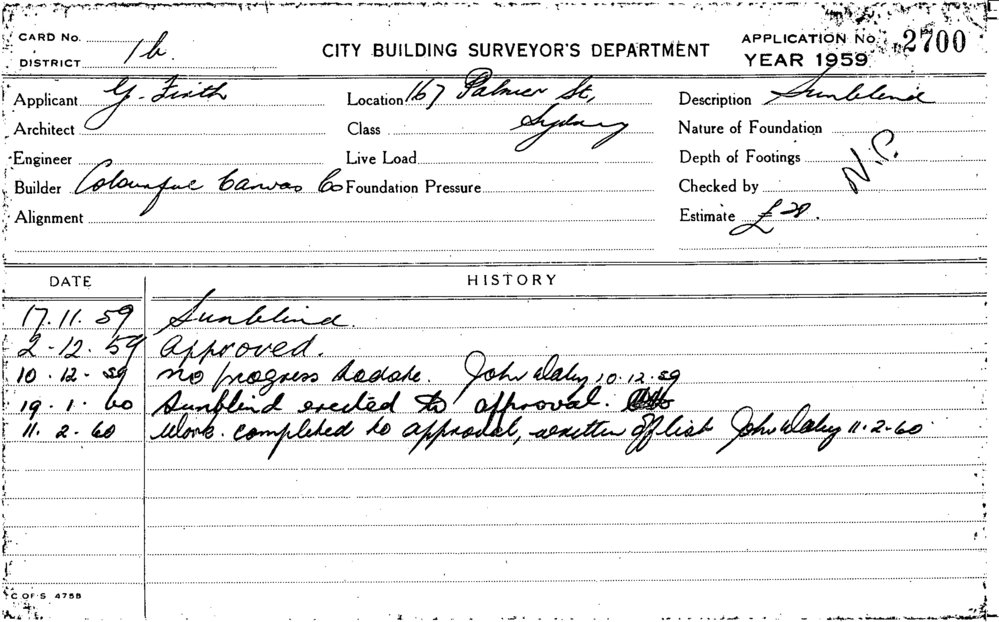 CARD No.
DISTRICT 1b.
CITY BUILDING SURVEYOR'S DEPARTMENT
APPLICATION No. 2700
YEAR 1959
Applicant G. Firth
Location 167 Palmer St,
Description Sunblind
Architect
Class Sydney
Nature of Foundation
Engineer
Live Load
Depth of Footings
N.P.
Builder Colourful Canvas Co
Foundation Pressure
Checked by
Alignment
Estimate £20.
DATE HISTORY
17.11.59 Sunblind.
2-12.59 Approved.
10.12.59 No progress todate. John Daley 10.12.59
19.1.60 Sunblind erected to approval.
11.2.60 Work completed to approval, written off list John Daley 11.2.60
C OF S 4758